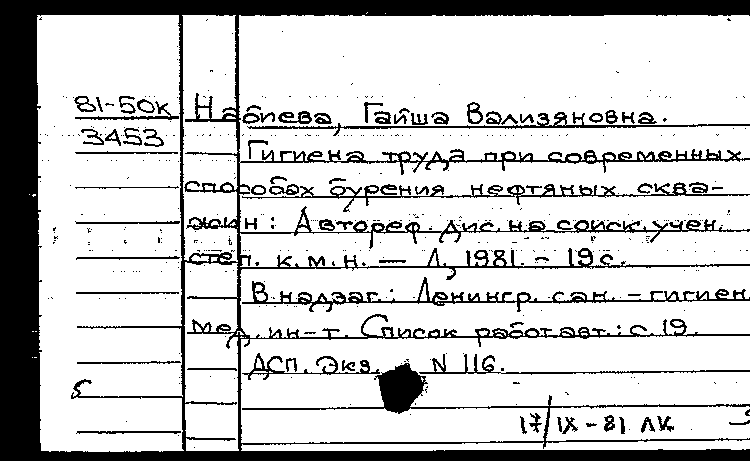 81-50к Набиева, Гайша Вализяновна.
3453
Гигиена труда при современных
способах бурения нефтяных сква-
жин: Автореф. дис. на соиск. учен.
степ. к.м.н. — Л., 1981. - 19 с.
В надзаг.: Ленингр. сан.-гигиен.
мед. ин-т. Список работ авт.: с. 19.
ДСП. Экз. N 116.
5
17/IX-81 ЛК